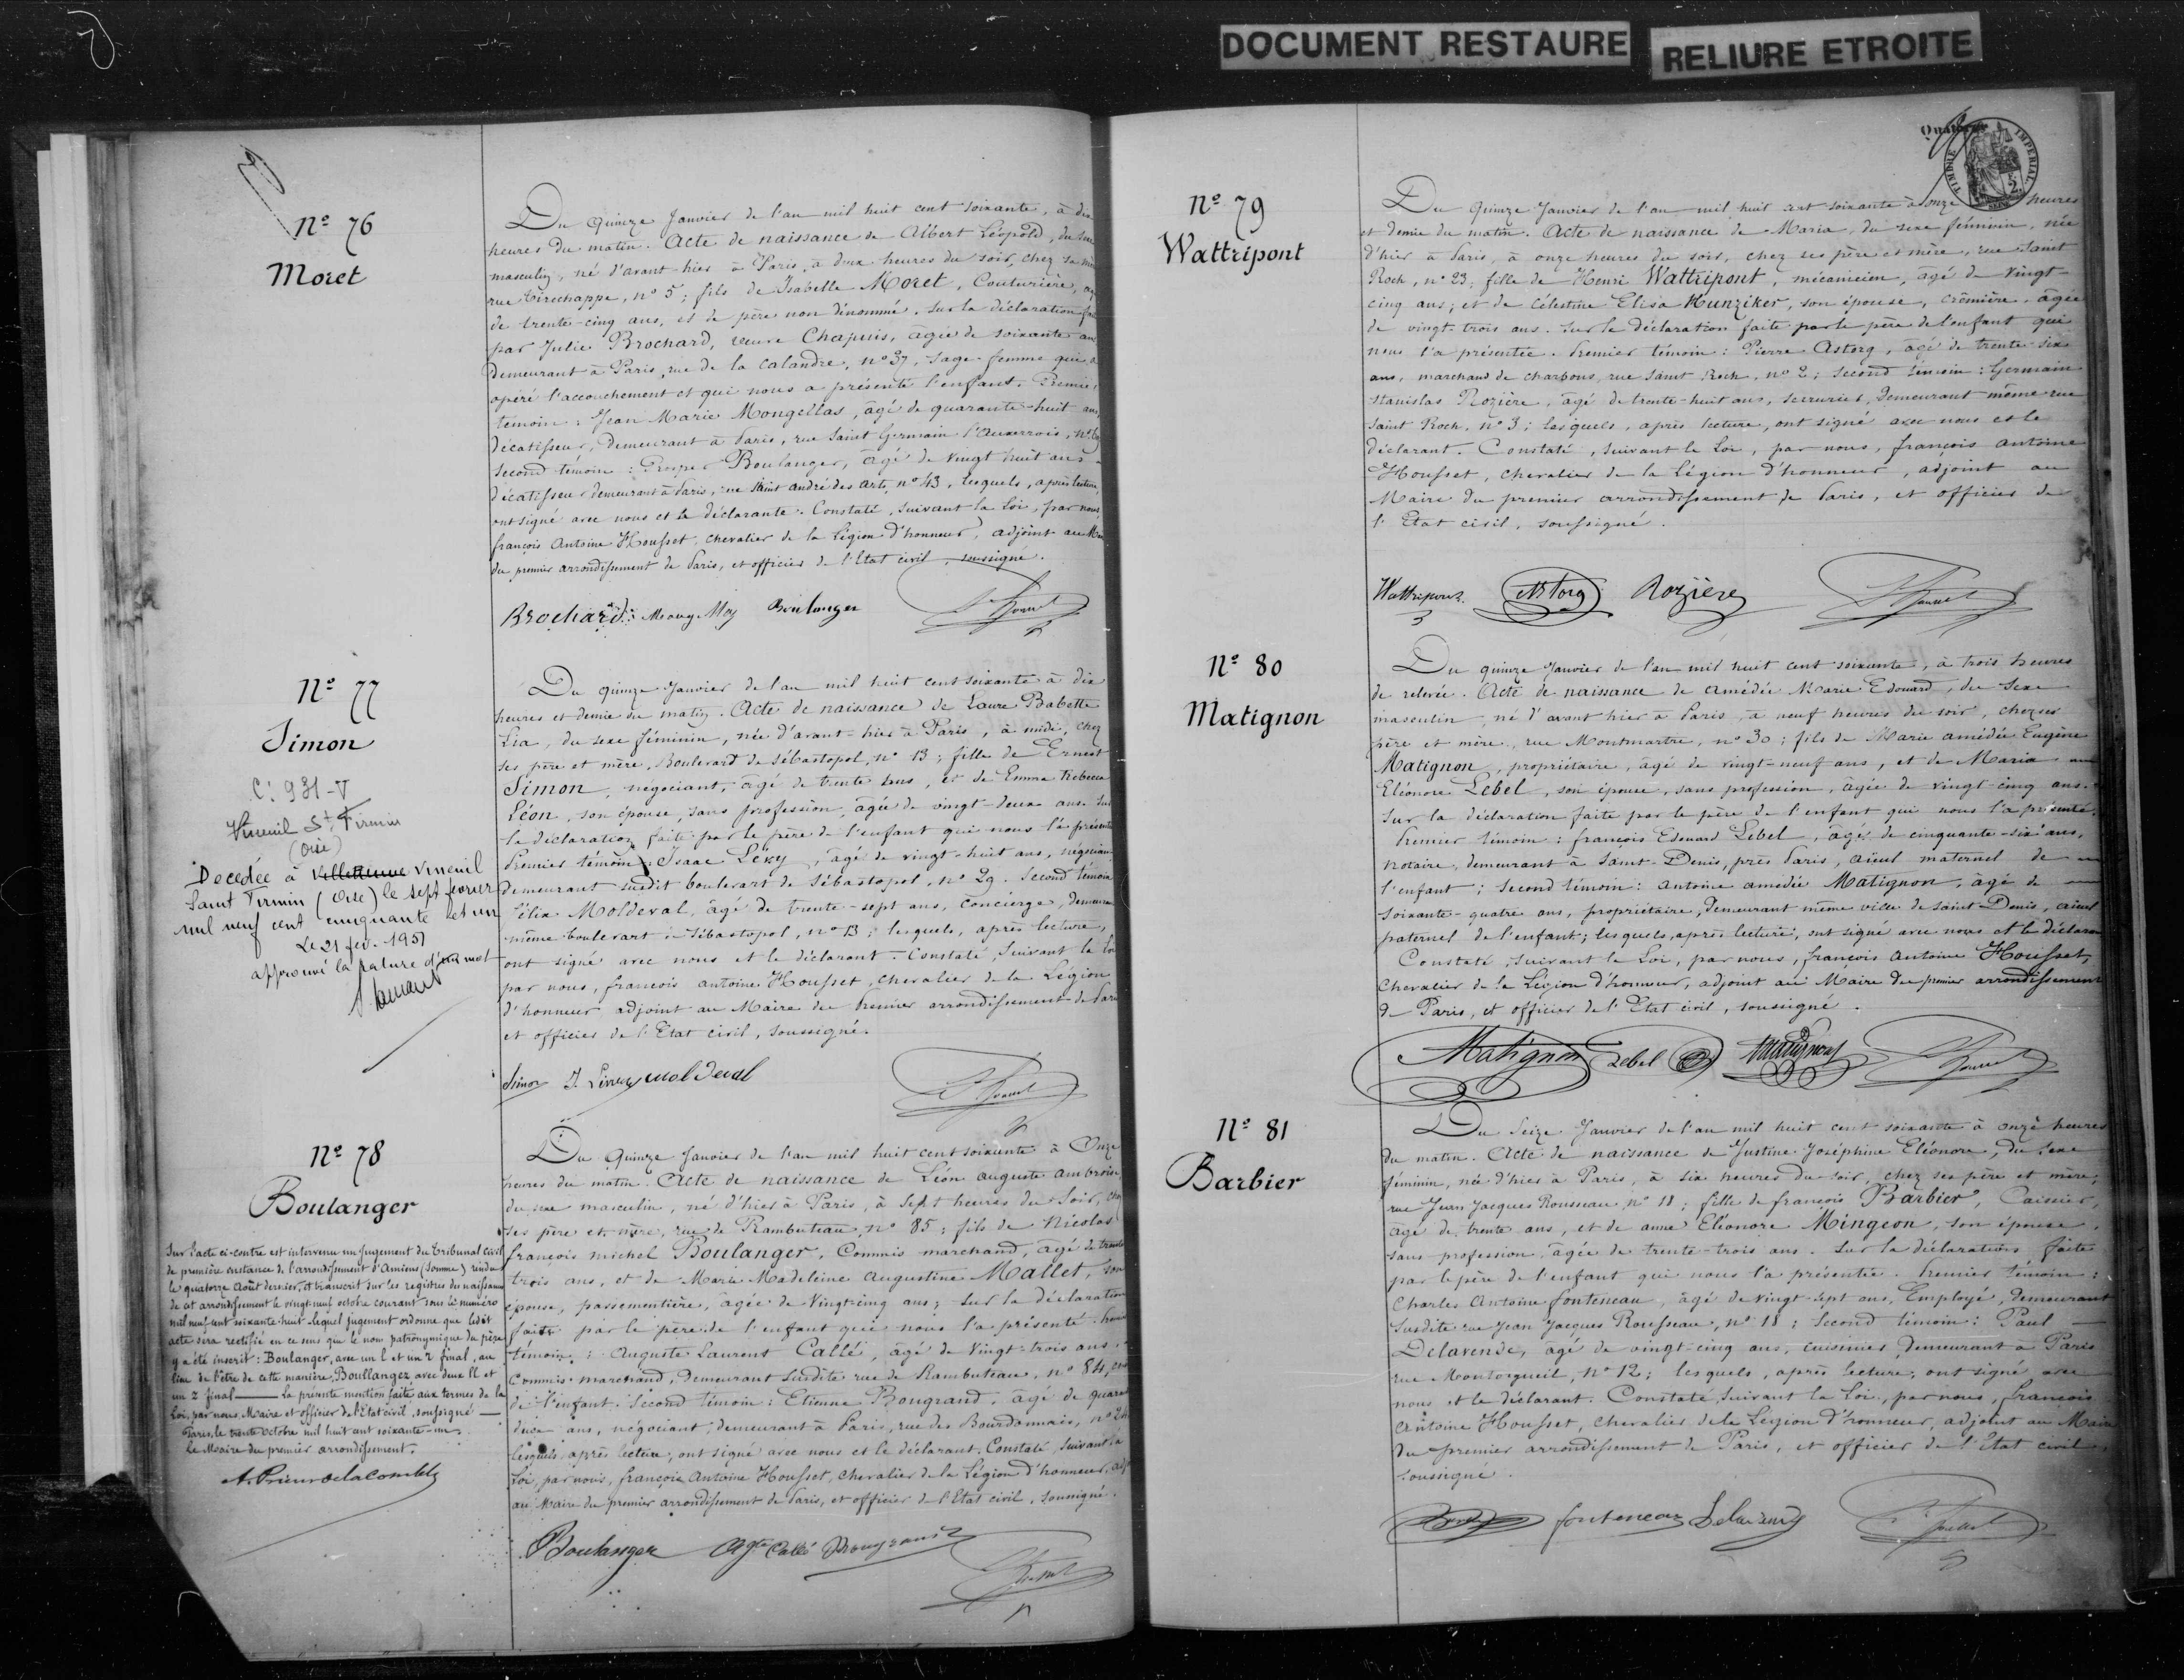 DOCUMENT RESTAURE
RELIURE ETROITE
Nº 76
Moret
Du quinze Janvier de l'an mil huit cent soixante, à dix
heures du matin. Acte de naissance de Albert Léopold, du sexe
masculin, né d'avant-hier à Paris, à deux heures du soir, chez sa mère
rue Tirechappe, nº 5; fils de Isabelle Moret, Couturière, âgée
de trente-cinq ans, et de père non dénommé. Sur la déclaration faite
par Julie Brochard, veuve Chapuis, âgée de soixante ans
demeurant à Paris, rue de la Calandre, nº 37, Sage-femme qui a
opéré l'accouchement et qui nous a présenté l'enfant. Premier
témoin: Jean Marie Mongellas, âgé de quarante-huit ans,
décatisseur, demeurant à Paris, rue Saint Germain l'Auxerrois, nº
Second témoin: Prosper Boulanger, âgé de vingt huit ans
décatisseur demeurant à Paris, rue Saint André des Arts, nº 43, lesquels, après lecture,
ont signé avec nous et la déclarante. Constaté, suivant la Loi, par nous,
françois Antoine Housset, chevalier de la Légion d'honneur, adjoint au Maire
du premier arrondissement de Paris, et officier de l'Etat civil, soussigné.
Brochard Boulanger
Nº 77
Simon
C: 931-V
Vineuil St Firmin
(Oise)
Decedée à Villeneuve Vineuil
Saint Firmin (Oise) le sept fevrier
mil neuf cent cinquante et un
Le 21 fev. 1951
approuvé la rature d'un mot
Du quinze Janvier de l'an mil huit cent soixante à dix
heures et demie du matin. Acte de naissance de Laure Babette
Lia, du sexe féminin, née d'avant-hier à Paris, à midi, chez
ses père et mère, Boulevart de Sébastopol, nº 13; fille de Ernest
Simon, négociant, âgé de trente ans, et de Emma Rebecca
Léon, son épouse, sans profession, âgée de vingt-deux ans. Sur
la déclaration faite par le père de l'enfant qui nous l'a présentée
Premier témoin: Isaac Lévy, âgé de vingt-huit ans, négociant
demeurant susdit boulevart de Sébastopol, nº 29. Second témoin
félix Moldeval, âgé de trente-sept ans, Concierge, demeurant
même boulevart de Sébastopol, nº 13; lesquels, après lecture,
ont signé avec nous et le déclarant. Constaté, suivant la Loi
par nous, françois antoine Housset, chevalier de la Légion
d'honneur adjoint au Maire du Premier arrondissement de Paris
et officier de l'Etat civil, soussigné.
Simon Moldeval
Nº 78
Boulanger
Sur l'acte ci-contre est intervenu un Jugement du Tribunal Civil
de première instance de l'arrondissement d'Amiens (Somme) rendu
le quatorze Août dernier, et transcrit sur les registres de naissance
de cet arrondissement le vingt-neuf octobre courant sous le numéro
mil neuf cent soixante-huit lequel jugement ordonne que ledit
acte sera rectifié en ce sens que le nom patronymique du père
y a été inscrit: Boulanger, avec un l et un r final, au
lieu de l'être de cette manière, Boullangez avec deux ll et
un z final — La présente mention faite aux termes de la
Loi, par nous, Maire et officier de l'Etat civil, soussigné —
Paris, le trente Octobre mil huit cent soixante-un.
Le Maire du premier arrondissement.
Du Quinze Janvier de l'an mil huit cent soixante à Onze
heures du matin. Acte de naissance de Léon auguste ambroise
du sexe masculin, né d'hier à Paris, à Sept heures du Soir, chez
ses père et mère, rue de Rambuteau, nº 85; fils de Nicolas
françois michel Boulanger, Commis marchand, âgé de trente
trois ans, et de Marie Madeleine Augustine Mallet, son
épouse, passementière, âgée de Vingt-cinq ans; sur la déclaration
faite par le père de l'enfant qui nous l'a présenté. Premier
témoin: Auguste Laurent Callé, âgé de Vingt-trois ans,
Commis-marchand, demeurant susdite rue de Rambuteau, nº 84,
de l'enfant. Second témoin: Etienne Bougrand, âgé de quarante
deux ans, négociant, demeurant à Paris, rue des Bourdonnais, nº
lesquels, après lecture, ont signé avec nous et le déclarant. Constaté, suivant la
Loi, par nous, françois Antoine Housset, chevalier de la Légion d'honneur, adjt
au Maire du premier arrondissement de Paris, et officier de l'Etat civil, soussigné.
Boulanger Agte Callé Bougrand
Nº 79
Wattripont
TIMBRE IMPERIAL
Du Quinze Janvier de l'an mil huit cent soixante à onze heures
et demie du matin. Acte de naissance de Maria, du sexe féminin, née
d'hier à Paris, à onze heures du soir, chez ses père et mère, rue Saint
Roch, nº 23; fille de Henri Wattripont, mécanicien, âgé de vingt-
cinq ans; et de Célestine Elisa Hunziker, son épouse, crêmière, âgée
de vingt-trois ans. Sur la déclaration faite par le père de l'enfant qui
nous l'a présentée. Premier témoin: Pierre Astorg, âgé de trente-six
ans, marchand de charbons, rue Saint Roch, nº 2; second témoin: Germain
Stanislas Rozière, âgé de trente-huit ans, serrurier, demeurant même rue
Saint Roch, nº 3; lesquels, après lecture, ont signé avec nous et le
déclarant. Constaté, suivant la Loi, par nous, françois Antoine
Housset, chevalier de la Légion d'honneur, adjoint au
Maire du premier arrondissement de Paris, et officier de
l'Etat civil, soussigné.
Wattripont Astorg Rozière
Nº 80
Matignon
Du quinze Janvier de l'an mil huit cent soixante, à trois heures
de relevée. Acte de naissance de Amédée Marie Edouard, du Sexe
masculin, né d'avant hier à Paris, à neuf heures du soir, chez ses
père et mère, rue Montmartre, nº 30; fils de Marie amédée Eugène
Matignon, propriétaire, âgé de vingt-neuf ans, et de Maria
Eléonore Lebel, son épouse, sans profession, âgée de vingt cinq ans.
Sur la déclaration faite par le père de l'enfant qui nous l'a présenté.
Premier témoin: françois Edouard Lebel, âgé de cinquante-six ans,
notaire, demeurant à Saint-Denis, près Paris, aïeul maternel de
l'enfant; second témoin: Antoine amédée Matignon, âgé de
soixante-quatre ans, propriétaire, demeurant même ville de Saint Denis, aïeul
paternel de l'enfant; lesquels, après lecture, ont signé avec nous et le déclarant
Constaté, suivant la Loi, par nous, françois Antoine Housset,
Chevalier de la Légion d'honneur, adjoint au Maire du premier arrondissement
de Paris, et officier de l'Etat civil, soussigné.
Matignon Lebel Matignon
Nº 81
Barbier
Du Seize Janvier de l'an mil huit cent soixante à onze heures
du matin. Acte de naissance de Justine Joséphine Eléonore, du sexe
féminin, née d'hier à Paris, à six heures du soir, chez ses père et mère,
rue Jean Jacques Rousseau, nº 18; fille de françois Barbier, Caissier,
âgé de trente ans, et de anne Eléonore Mingeon, son épouse,
sans profession, âgée de trente-trois ans. Sur la déclaration faite
par le père de l'enfant qui nous l'a présentée. Premier témoin:
Charles Antoine fonteneau, âgé de vingt-sept ans, Employé, demeurant
susdite rue Jean Jacques Rousseau, nº 18; Second témoin: Paul
Delavende, âgé de vingt-cinq ans, cuisinier, demeurant à Paris
rue Montorgueil, nº 12; lesquels, après lecture, ont signé avec
nous et le déclarant. Constaté, suivant la Loi, par nous, françois
Antoine Housset, chevalier de la Légion d'honneur, adjoint au Maire
du premier arrondissement de Paris, et officier de l'Etat civil
soussigné.
fonteneau